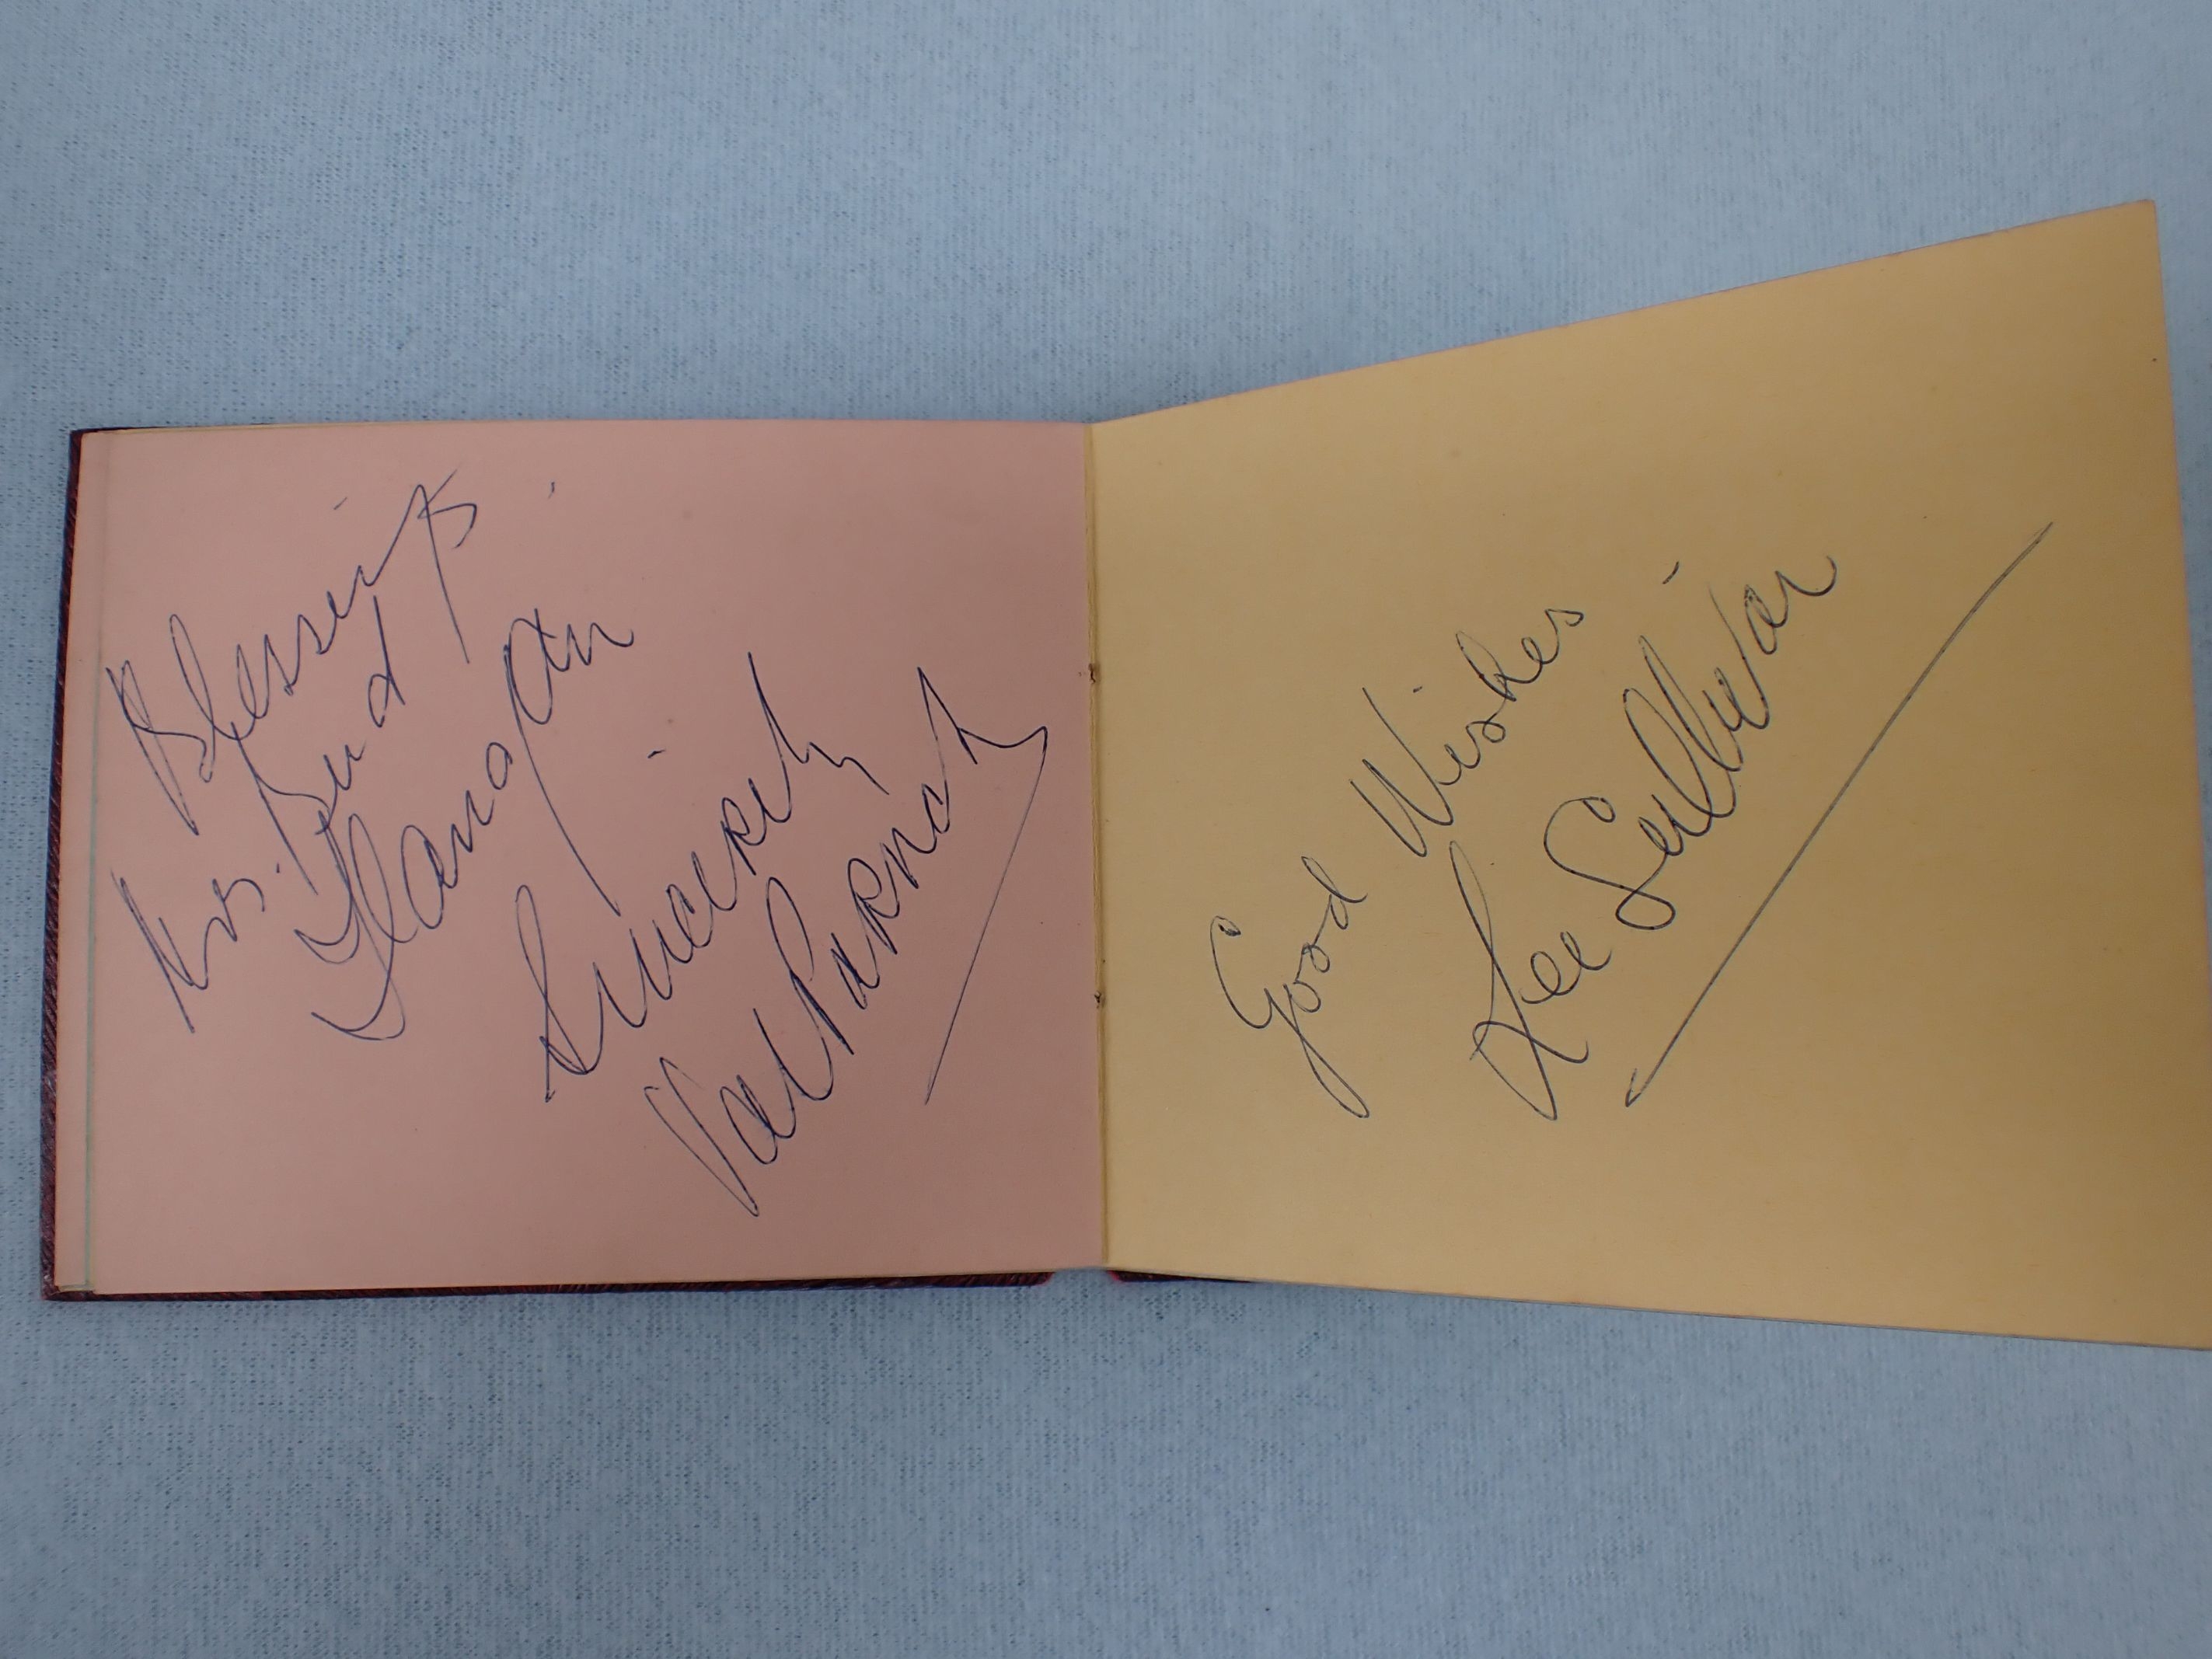 Blessings
Mrs. Bud
Flanagan
Sincerely
Val Parnell
Good Wishes
Lee Sullivan